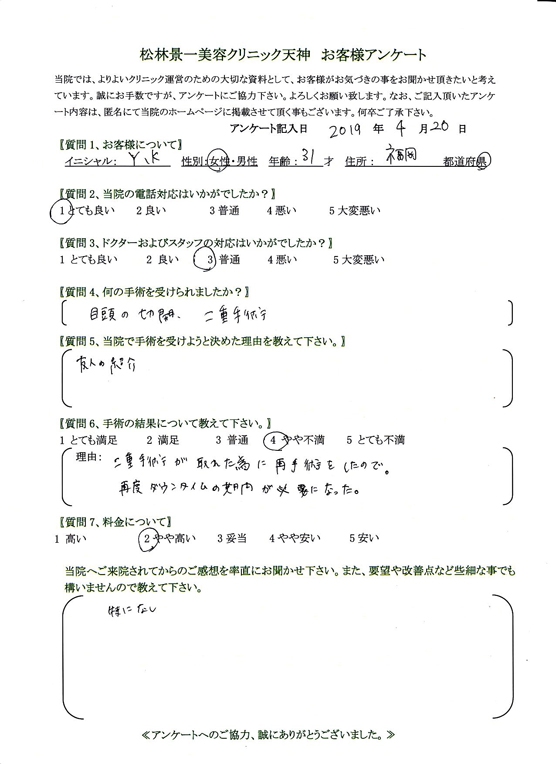 松林景一美容クリニック天神　お客様アンケート
当院では、よりよいクリニック運営のための大切な資料として、お客様がお気づきの事をお聞かせ頂きたいと考え
ています。誠にお手数ですが、アンケートにご協力下さい。よろしくお願い致します。なお、ご記入頂いたアンケ
ート内容は、匿名にて当院のホームページに掲載させて頂く事もございます。何卒ご了承下さい。
アンケート記入日　2019　年　4　月 20　日
〖質問 1、お客様について〗
イニシャル：　Y、K　性別：女性・男性　年齢：31 才　住所：　福岡　都道府県
〖質問 2、当院の電話対応はいかがでしたか？〗
1 とても良い　2 良い　3 普通　4 悪い　5 大変悪い
〖質問 3、ドクターおよびスタッフの対応はいかがでしたか？〗
1 とても良い　2 良い　3 普通　4 悪い　5 大変悪い
〖質問 4、何の手術を受けられましたか？〗
目頭の切開、二重手術
〖質問 5、当院で手術を受けようと決めた理由を教えて下さい。〗
友人の紹介
〖質問 6、手術の結果について教えて下さい。〗
1 とても満足　2 満足　3 普通　4 やや不満　5 とても不満
理由：　二重手術が取れた為に再手術をしたので。
再度ダウンタイムの期間が必要になった。
〖質問 7、料金について〗
1 高い　2 やや高い　3 妥当　4 やや安い　5 安い
当院へご来院されてからのご感想を率直にお聞かせ下さい。また、要望や改善点など些細な事でも
構いませんので教えて下さい。
特になし
≪アンケートへのご協力、誠にありがとうございました。≫